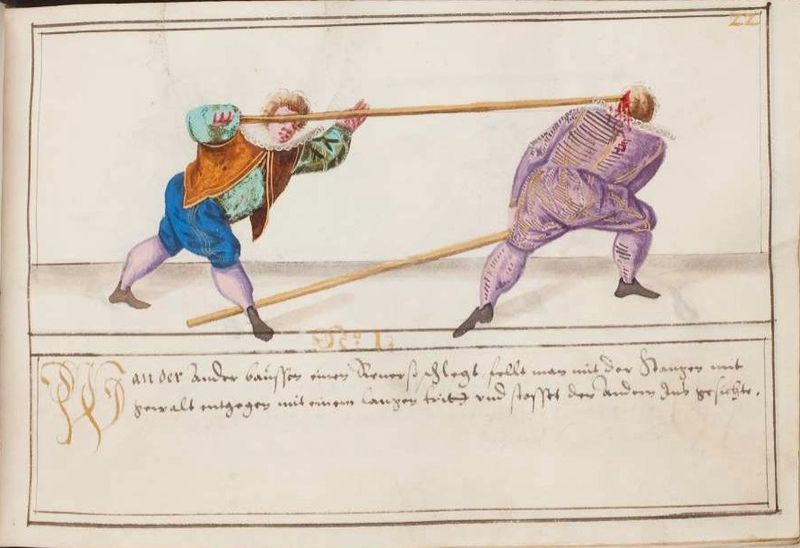 22
No 1.
Wan der Ander baussen einen Reverß schlegt, fellt man mit der Stangen mit
gewalt entgegen mit einem langen tritt vnd stosset den Andern Ins gesichte.